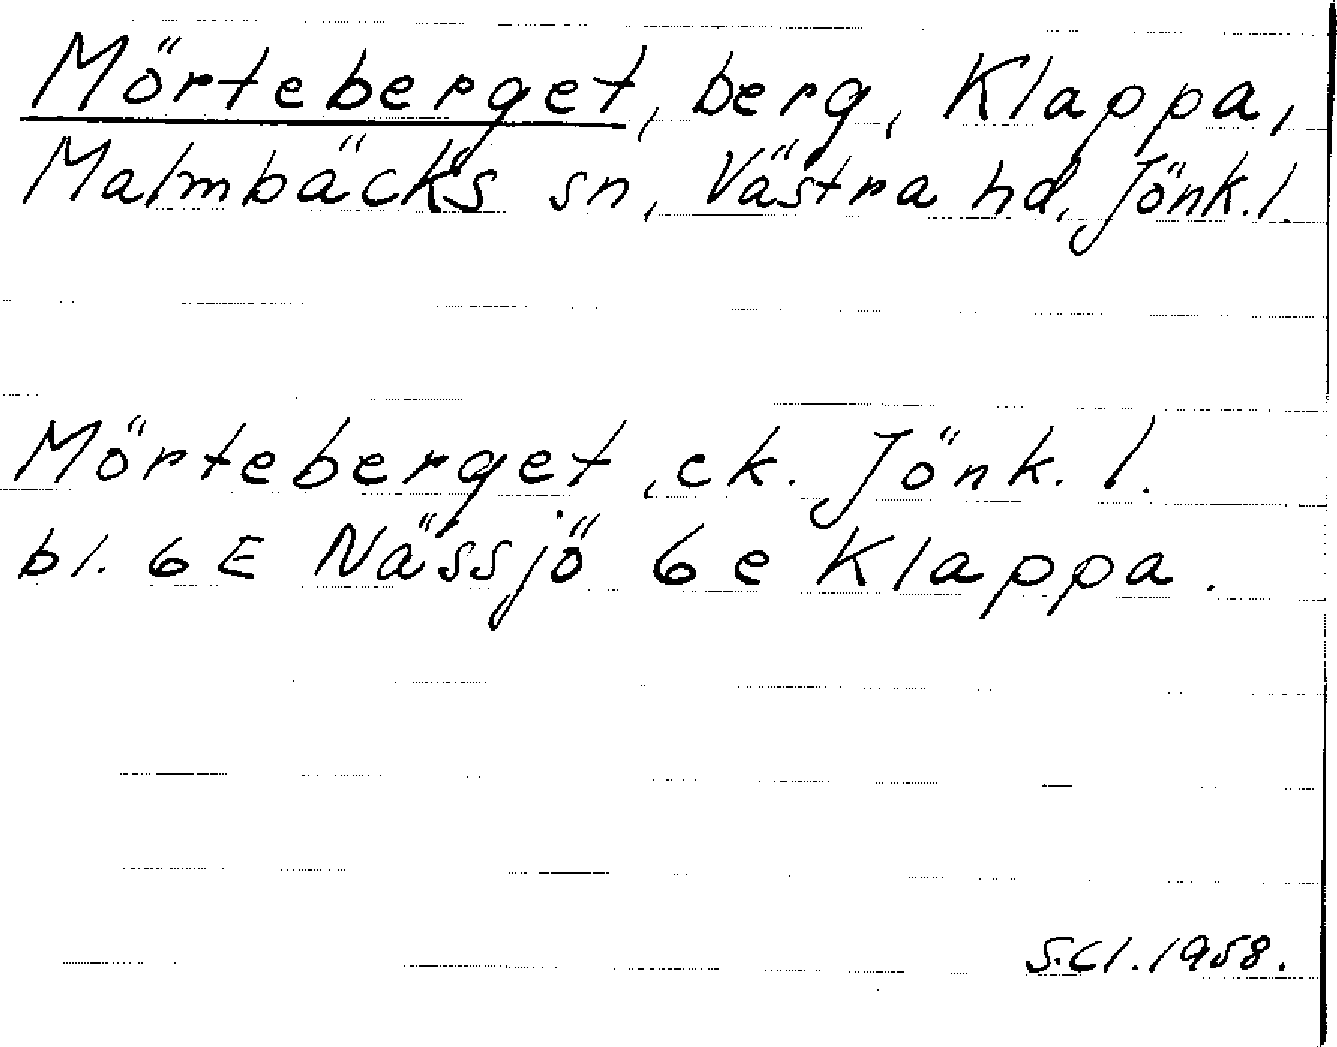 Mörteberget, berg, Klappa,
Malmbäcks sn, Västra hd, Jönk.l.
Mörteberget, ek. Jönk. l.
bl. 6 E Nässjö 6 e Klappa.
S.Cl. 1958.